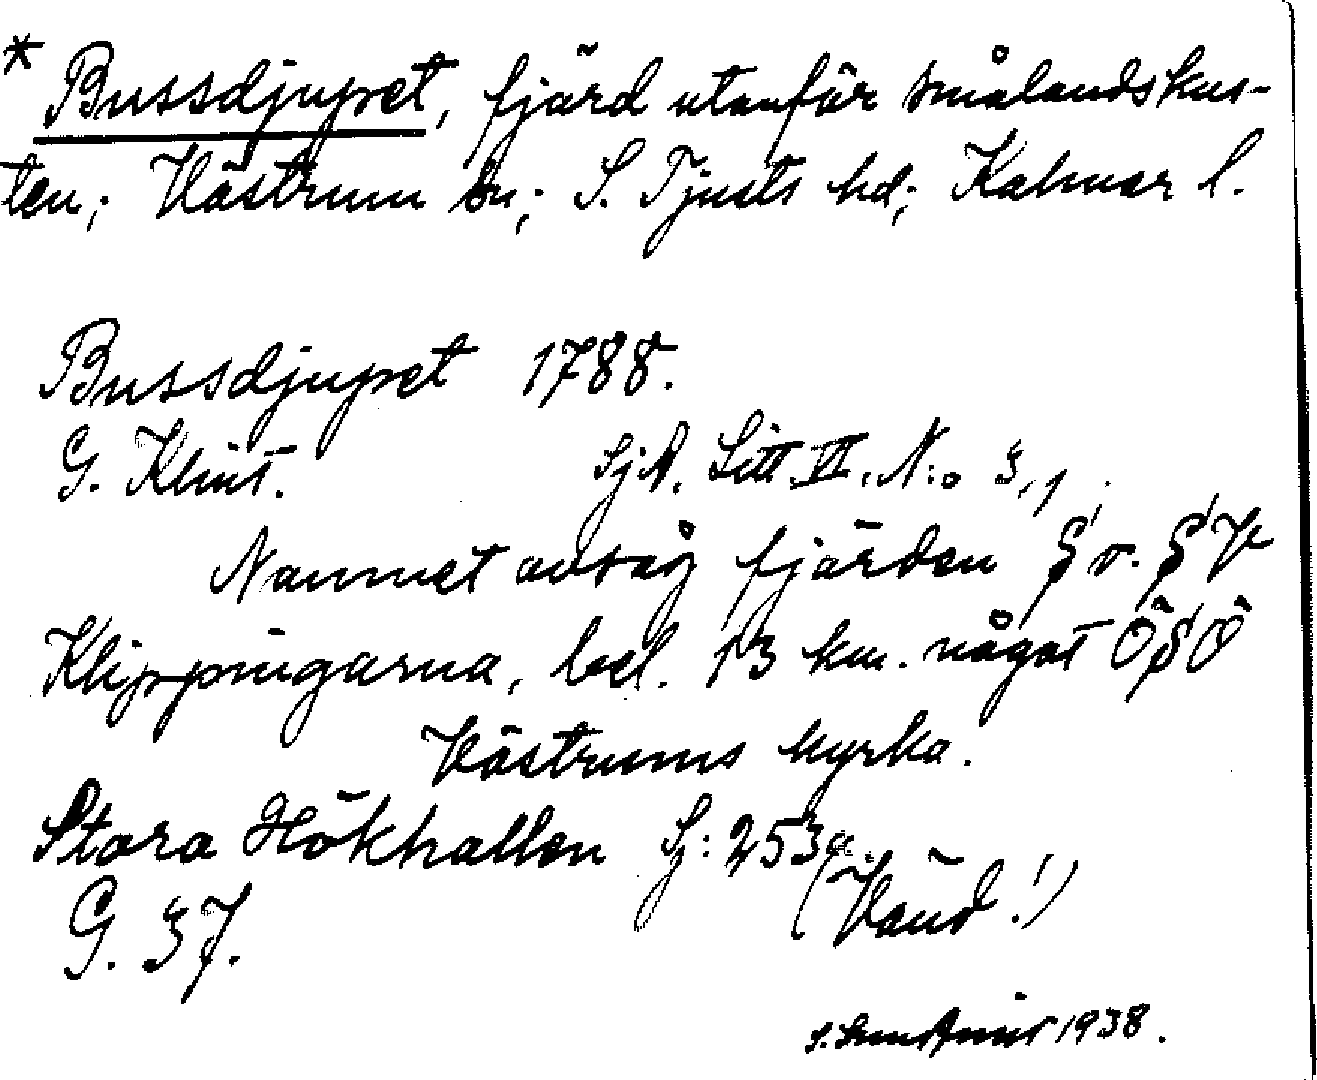 * Bussdjupet, fjärd utanför smålandskus-
ten; Västrum sn; S. Tjusts hd; Kalmar l.
Bussdjupet 1788.
G. Klint. Sj.A. Litt. VI. N:o 3,1.
Namnet avsåg fjärden S o. SV
Klippingarna, bel. 13 km. något OSO
Västrums kyrka.
Stora Hökhallen Sj: 253
G. 37. (Vänd!)
1938.